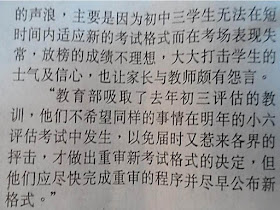 的声浪，主要是因为初中三学生无法在短
时间内适应新的考试格式而在考场表现失
常，放榜的成绩不理想，大大打击学生的
士气及信心，也让家长与教师颇有怨言。
“教育部吸取了去年初三评估的教
训，他们不希望同样的事情在明年的小六
评估考试中发生，以免届时又惹来各界的
抨击，才做出重审新考试格式的决定，但
他们应尽快完成重审的程序并尽早公布新
格式。”